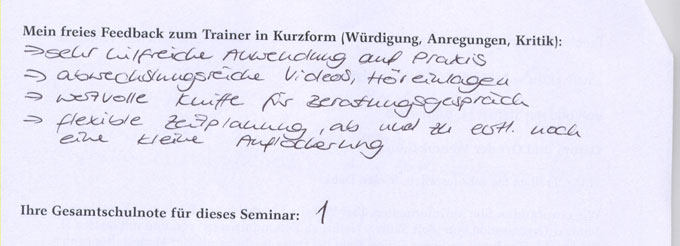 Mein freies Feedback zum Trainer in Kurzform (Würdigung, Anregungen, Kritik):
⇒ sehr hilfreiche Anwendung auf Praxis
⇒ abwechslungsreiche Videos, Höreinlagen
⇒ wertvolle Kniffe für Beratungsgespräch
⇒ flexible Zeitplanung, ab und zu evtl. noch
eine kleine Auflockerung
Ihre Gesamtschulnote für dieses Seminar: 1